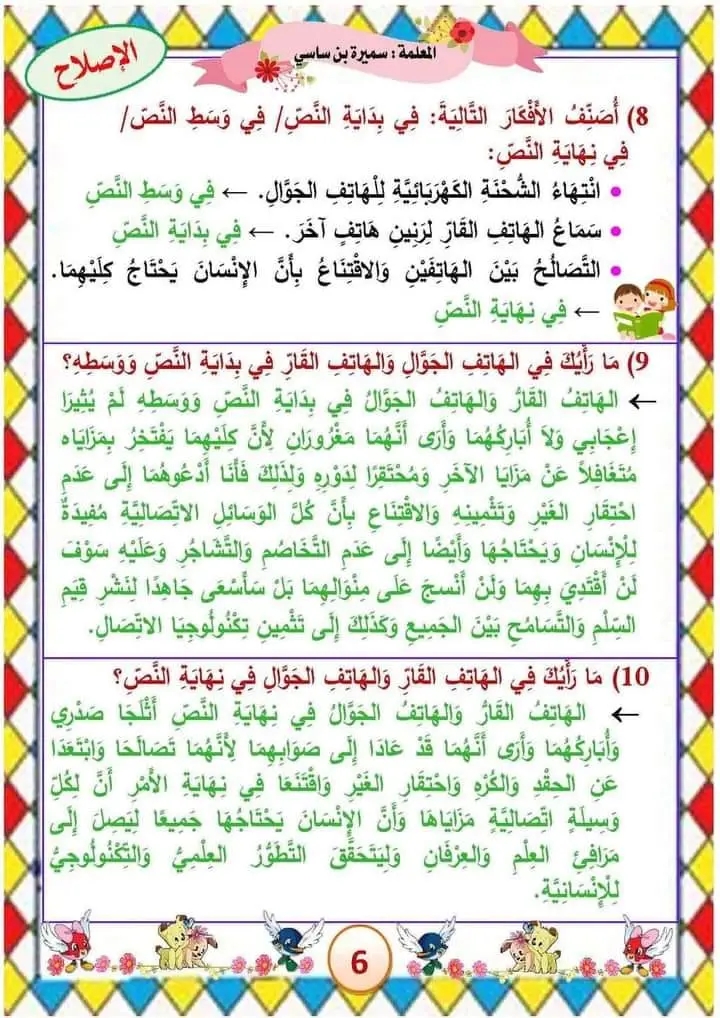 الإصلاح
المعلمة : سميرة بن ساسي
8) أُصَنِّفُ الأَفْكَارَ التَّالِيَةَ: فِي بِدَايَةِ النَّصِّ/ فِي وَسَطِ النَّصِّ/
فِي نِهَايَةِ النَّصِّ:
• انْتِهَاءُ الشُّحْنَةِ الكَهْرَبَائِيَّةِ لِلْهَاتِفِ الجَوَّالِ. ← فِي وَسَطِ النَّصِّ
• سَمَاعُ الهَاتِفِ القَارِّ لِرَنِينِ هَاتِفٍ آخَرَ. ← فِي بِدَايَةِ النَّصِّ
• التَّصَالُحُ بَيْنَ الهَاتِفَيْنِ وَالاقْتِنَاعُ بِأَنَّ الإِنْسَانَ يَحْتَاجُ كِلَيْهِمَا.
← فِي نِهَايَةِ النَّصِّ
9) مَا رَأْيُكَ فِي الهَاتِفِ الجَوَّالِ وَالهَاتِفِ القَارِّ فِي بِدَايَةِ النَّصِّ وَوَسَطِهِ؟
← الهَاتِفُ القَارُّ وَالهَاتِفُ الجَوَّالُ فِي بِدَايَةِ النَّصِّ وَوَسَطِهِ لَمْ يُثِيرَا
إِعْجَابِي وَلاَ أُبَارِكُهُمَا وَأَرَى أَنَّهُمَا مَغْرُورَانِ لِأَنَّ كِلَيْهِمَا يَفْتَخِرُ بِمَزَايَاه
مُتَغَافِلاً عَنْ مَزَايَا الآخَرِ وَمُحْتَقِرًا لِدَوْرِهِ وَلِذَلِكَ فَأَنَا أَدْعُوهُمَا إِلَى عَدَمِ
احْتِقَارِ الغَيْرِ وَتَثْمِينِهِ وَالاقْتِنَاعِ بِأَنَّ كُلَّ الوَسَائِلِ الاتِّصَالِيَّةِ مُفِيدَةٌ
لِلْإِنْسَانِ وَيَحْتَاجُهَا وَأَيْضًا إِلَى عَدَمِ التَّخَاصُمِ وَالتَّشَاجُرِ وَعَلَيْهِ سَوْفَ
لَنْ أَقْتَدِيَ بِهِمَا وَلَنْ أَنْسجَ عَلَى مِنْوَالِهِمَا بَلْ سَأَسْعَى جَاهِدًا لِنَشْرِ قِيَمِ
السِّلْمِ وَالتَّسَامُحِ بَيْنَ الجَمِيعِ وَكَذَلِكَ إِلَى تَثْمِينِ تِكْنُولُوجِيَا الاتِّصَالِ.
10) مَا رَأْيُكَ فِي الهَاتِفِ القَارِّ وَالهَاتِفِ الجَوَّالِ فِي نِهَايَةِ النَّصِّ؟
← الهَاتِفُ القَارُّ وَالهَاتِفُ الجَوَّالُ فِي نِهَايَةِ النَّصِّ أَثْلَجَا صَدْرِي
وَأُبَارِكُهُمَا وَأَرَى أَنَّهُمَا قَدْ عَادَا إِلَى صَوَابِهِمَا لِأَنَّهُمَا تَصَالَحَا وَابْتَعَدَا
عَنِ الحِقْدِ وَالكُرْهِ وَاحْتِقَارِ الغَيْرِ وَاقْتَنَعَا فِي نِهَايَةِ الأَمْرِ أَنَّ لِكُلِّ
وَسِيلَةٍ اتِّصَالِيَّةٍ مَزَايَاهَا وَأَنَّ الإِنْسَانَ يَحْتَاجُهَا جَمِيعًا لِيَصِلَ إِلَى
مَرَافِئِ العِلْمِ وَالعِرْفَانِ وَلِيَتَحَقَّقَ التَّطَوُّرُ العِلْمِيُّ وَالتِّكْنُولُوجِيُّ
لِلْإِنْسَانِيَّةِ.
6